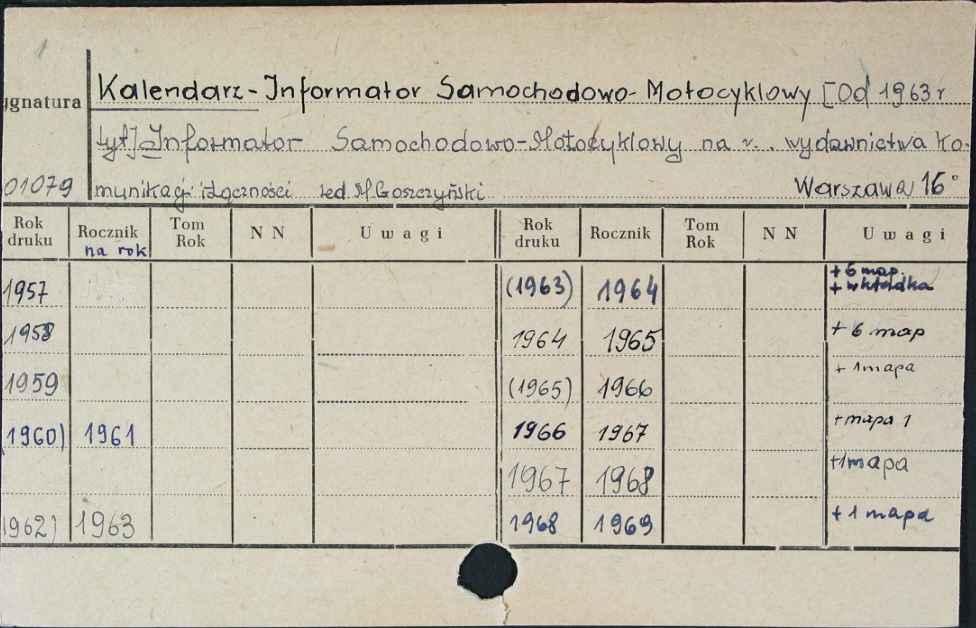 1
ygnatura
Kalendarz-Informator Samochodowo-Motocyklowy [Od 1963 r
tyt] Informator Samochodowo-Motocyklowy na r. wydawnictwa Ko-
01079 munikacji i Łączności red M Goszczyński Warszawa 16°
Rok druku Rocznik Tom Rok NN Uwagi Rok druku Rocznik Tom Rok NN Uwagi
na rok
1957 (1963) 1964 + 6 map. + wkładka
1958 1964 1965 + 6 map
1959 (1965) 1966 + 1 mapa
(1960) 1961 1966 1967 + mapa 1
1967 1968 +1 mapa
1962) 1963 1968 1969 + 1 mapa